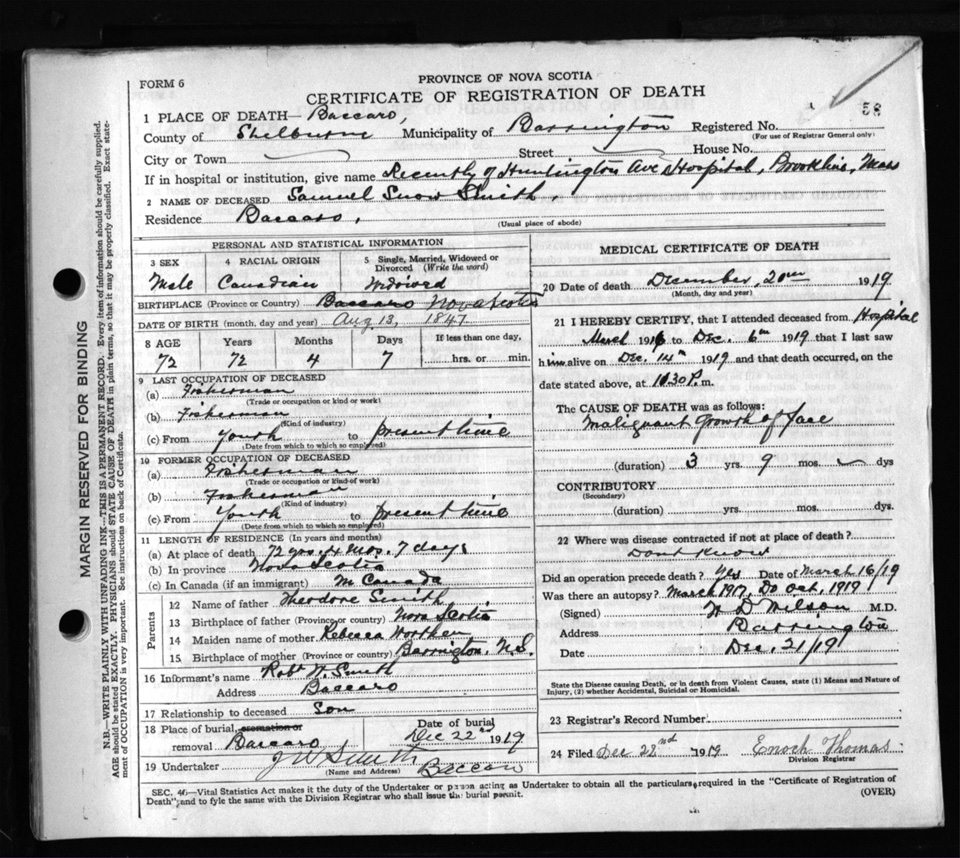 FORM 6
PROVINCE OF NOVA SCOTIA
CERTIFICATE OF REGISTRATION OF DEATH
58
1 PLACE OF DEATH— Baccaro,
County of Shelburne Municipality of Barrington Registered No.
(For use of Registrar General only)
City or Town Street House No.
If in hospital or institution, give name Recently of Huntington Ave Hospital, Brookline, Mass
2 NAME OF DECEASED Samuel Snow Smith,
Residence Baccaro,
(Usual place of abode)
PERSONAL AND STATISTICAL INFORMATION
3 SEX 4 RACIAL ORIGIN 5 Single, Married, Widowed or Divorced (Write the word)
Male Canadian Widowed
BIRTHPLACE (Province or Country) Baccaro Nova Scotia
DATE OF BIRTH (month, day and year) Aug 13, 1847
8 AGE Years Months Days If less than one day,
72 72 4 7 hrs. or min.
9 LAST OCCUPATION OF DECEASED
(a) Fisherman
(Trade or occupation or kind or work)
(b) Fisherman
(Kind of industry)
(c) From Youth to present time
(Date from which to which so employed)
10 FORMER OCCUPATION OF DECEASED
(a) Fisherman
(Trade or occupation or kind of work)
(b) Fisherman
(Kind of industry)
(c) From Youth to present time
(Date from which to which so employed)
11 LENGTH OF RESIDENCE (In years and months)
(a) At place of death 72 yrs. 4 Mos. 7 days
(b) In province Nova Scotia
(c) In Canada (if an immigrant) in Canada
Parents
12 Name of father Theodore Smith
13 Birthplace of father (Province or country) Nova Scotia
14 Maiden name of mother Rebecca Worthen
15 Birthplace of mother (Province or country) Barrington, N.S.
16 Informant's name Robt Smith
Address Baccaro
17 Relationship to deceased Son
18 Place of burial, cremation or removal Baccaro Date of burial Dec 22nd 1919
19 Undertaker J W Smith Baccaro
(Name and Address)
MEDICAL CERTIFICATE OF DEATH
20 Date of death December, 20th 1919
(Month, day and year)
21 I HEREBY CERTIFY, that I attended deceased from Hospital
March 1916 to Dec. 6th 1919 that I last saw
him alive on Dec. 14th 1919 and that death occurred, on the
date stated above, at 10.30 P.m.
The CAUSE OF DEATH was as follows:
Malignant Growth of face
(duration) 3 yrs. 9 mos. dys
CONTRIBUTORY
(Secondary)
(duration) yrs. mos. dys.
22 Where was disease contracted if not at place of death?
Dont Know
Did an operation precede death? Yes Date of March 16/19
Was there an autopsy? March 1917, Do Oct, 1919
(Signed) W D Wilson M.D.
Address Barrington
Date Dec, 21/19
State the Disease causing Death, or in death from Violent Causes, state (1) Means and Nature of
Injury, (2) whether Accidental, Suicidal or Homicidal.
23 Registrar's Record Number
24 Filed Dec 22nd 1919 Enoch Thomas
Division Registrar
SEC. 40—Vital Statistics Act makes it the duty of the Undertaker or person acting as Undertaker to obtain all the particulars required in the "Certificate of Registration of
Death" and to fyle the same with the Division Registrar who shall issue the burial permit. (OVER)
MARGIN RESERVED FOR BINDING
N.B.—WRITE PLAINLY WITH UNFADING INK—THIS IS A PERMANENT RECORD. Every item of information should be carefully supplied.
AGE should be stated EXACTLY. PHYSICIANS should STATE CAUSE OF DEATH in plain terms, so that it may be properly classified. Exact state-
ment of OCCUPATION is very important. See instructions on back of Certificate.